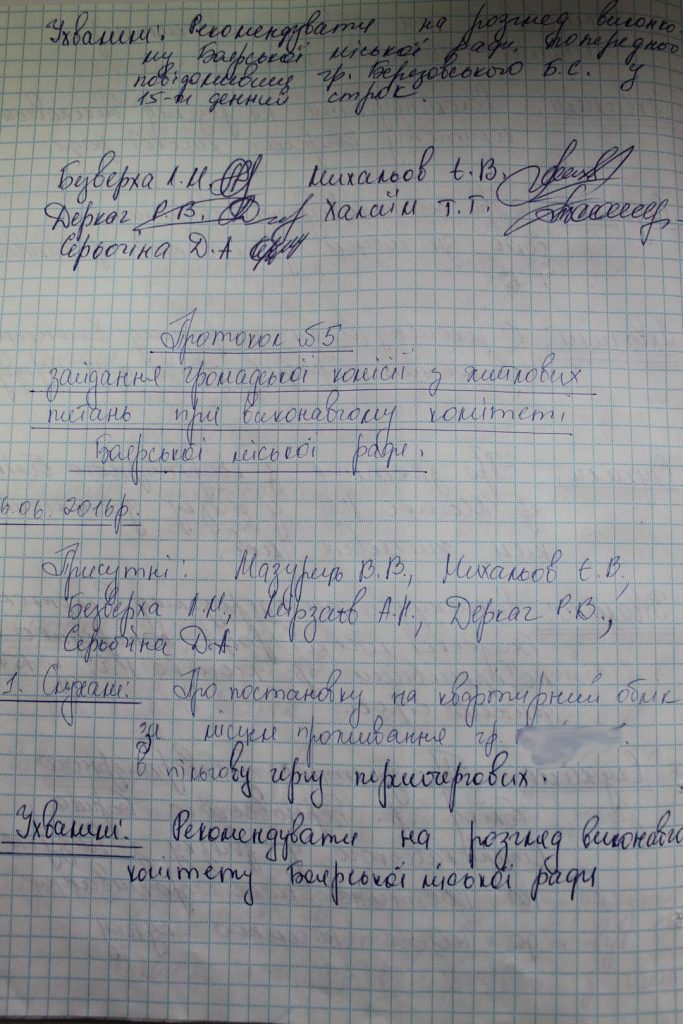 Ухвалили: Рекомендувати на розгляд виконко-
му Боярської міської ради, попередньо
повідомивши гр. Березовського Б.С. у
15-ти денний строк.
Безверха Л.М. Михальов Є.В.
Деркач Р.В. Халаїм Т.Г.
Серьогіна Д.А
Протокол №5
зайдання громадської комісії з житлових
питань при виконавчому комітеті
Боярської міської ради.
6.06.2016р.
Присутні: Мазурець В.В., Михальов Є.В.,
Безверха Л.М., А.Н., Деркач Р.В.,
Серьогіна Д.А.
1. Слухали: Про постановку на квартирний облік
за місцем проживання гр.
в пільгову чергу першочергових.
Ухвалили: Рекомендувати на розгляд виконавчо
комітету Боярської міської ради